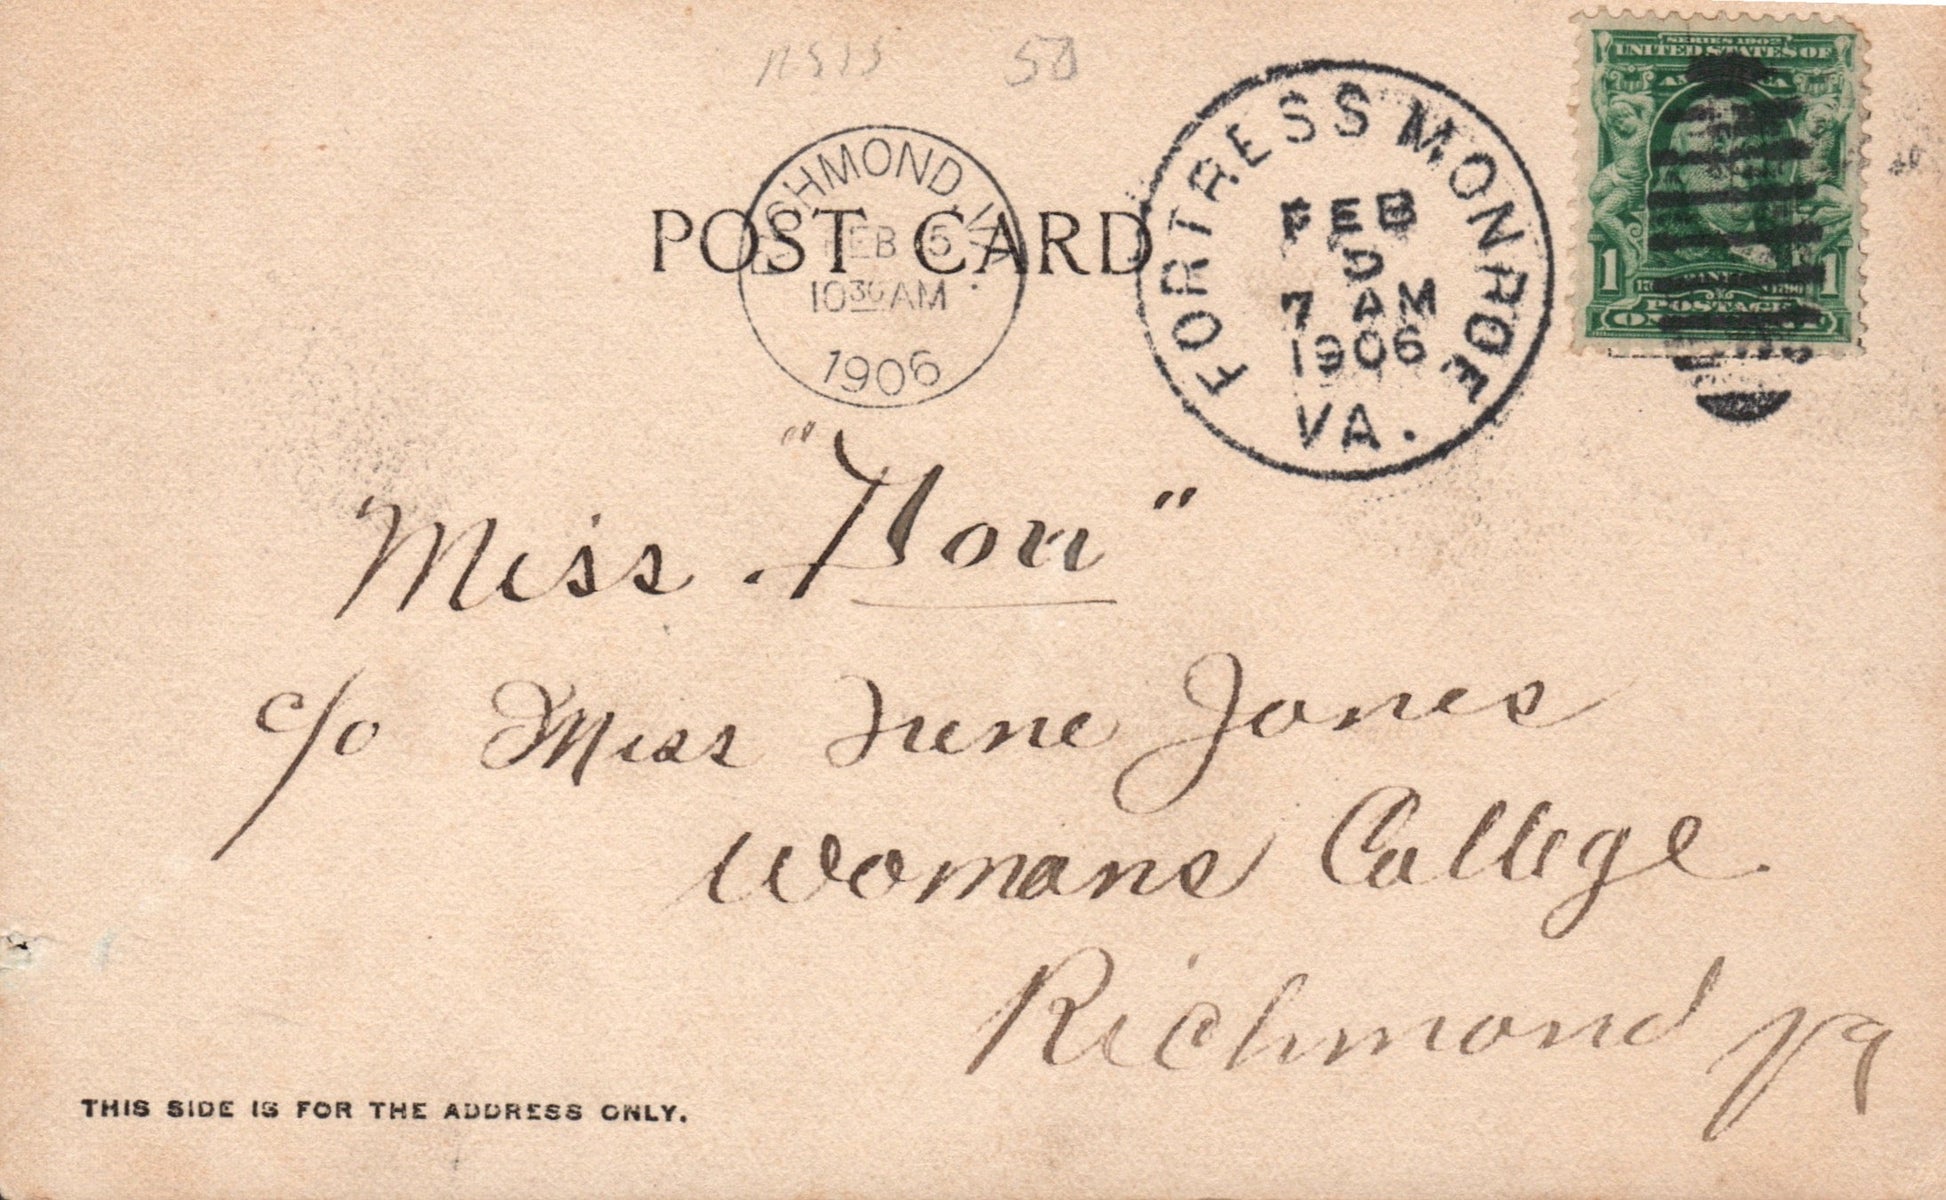 50
SERIES 1902
UNITED STATES OF
AMERICA
1 1
POSTAGE
RICHMOND, VA.
FEB 5
10 30 AM
1906
FORTRESS MONROE
FEB
5
7 AM
1906
VA.
POST CARD
Miss "Hon"
c/o Miss June Jones
Womans College
Richmond Va
THIS SIDE IS FOR THE ADDRESS ONLY.